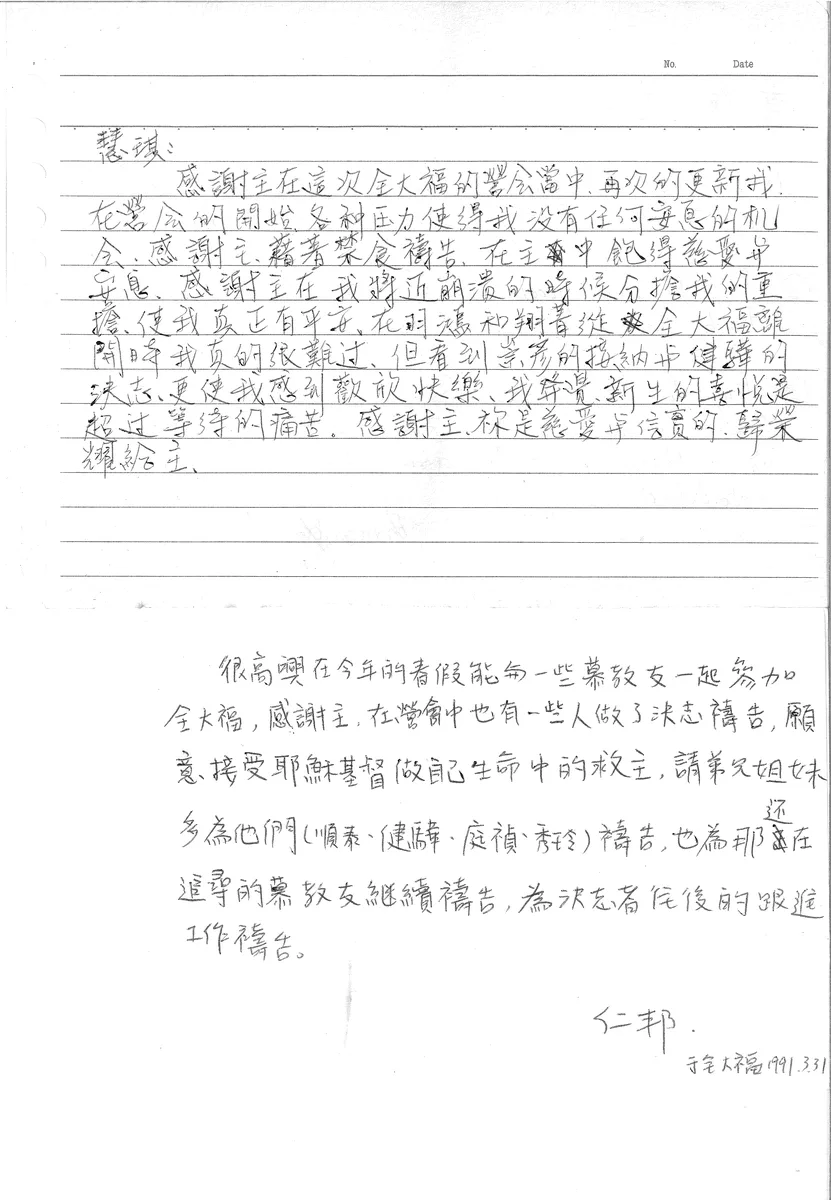 No. Date
慧琪:
感謝主在這次全大福的營会當中、再次的更新我.
在營会的開始、各种压力使得我没有任何安息的机
会、感謝主、藉著禁食禱告、在主中飽得慈愛与
安息、感謝主在我將近崩潰的時候分擔我的重
擔、使我真正有平安、在羽鴻和翔書從全大福離
開時我真的很難过、但看到崇彦的接納与健驊的
決志、更使我感到歡欣快樂、我發覺、新生的喜悅是
超过等待的痛苦。感謝主、祢是慈愛与信實的、歸榮
耀給主、
很高興在今年的春假能与一些慕教友一起參加
全大福，感謝主，在營會中也有一些人做了決志禱告，願
意接受耶穌基督做自己生命中的救主，請弟兄姐妹
多為他們(順泰、健驊、庭禎、秀玲)禱告，也為那还在
追尋的慕教友継續禱告，為決志者往後的跟進
工作禱告。
仁邦.
于全大福1991.3.31